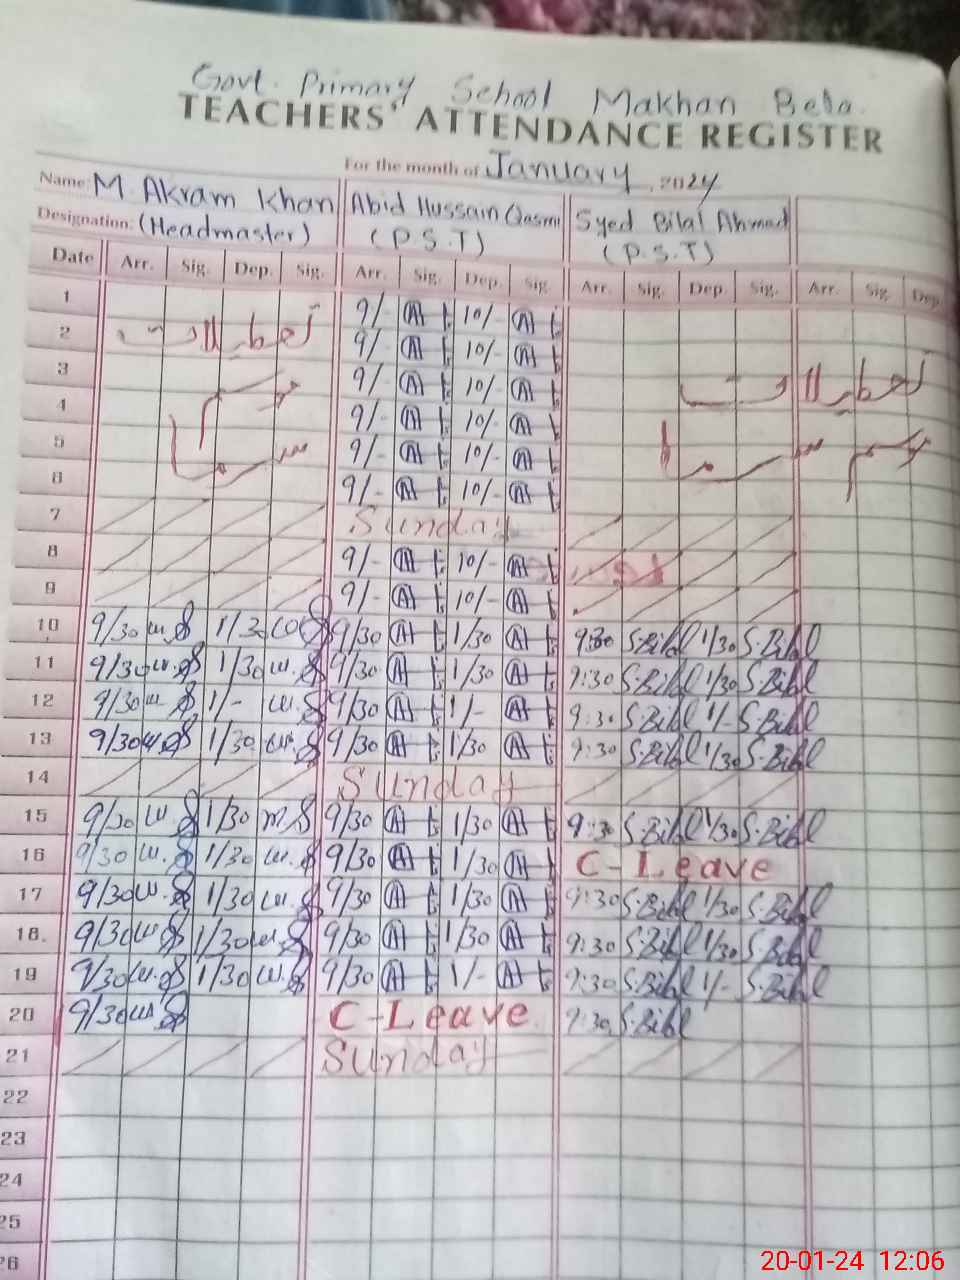 Govt. Primary School Makhan Bela.
TEACHERS' ATTENDANCE REGISTER
For the month of January, 2024
Name: M. Akram Khan Abid Hussain Qasmi Syed Bilal Ahmad
Designation: (Headmaster) (P.S.T) (P.S.T)
Date Arr. Sig. Dep. Sig. Arr. Sig. Dep. Sig. Arr. Sig. Dep. Sig. Arr. Sig. Dep.
1 9/- 10/-
2 تعطیلات 9/- 10/-
3 9/- 10/- تعطیلات
4 موسم 9/- 10/-
5 سرما 9/- 10/- موسم سرما
6 9/- 10/-
7 Sunday
8 9/- 10/-
9 9/- 10/-
10 9/30 1/30 9/30 1/30 9:30 S.Bilal 1/30 S.Bilal
11 9/30 1/30 9/30 1/30 9:30 S.Bilal 1/30 S.Bilal
12 9/30 1/- 9/30 1/- 9:30 S.Bilal 1/- S.Bilal
13 9/30 1/30 9/30 1/30 9:30 S.Bilal 1/30 S.Bilal
14 Sunday
15 9/30 1/30 9/30 1/30 9:30 S.Bilal 1/30 S.Bilal
16 9/30 1/30 9/30 1/30 C-Leave
17 9/30 1/30 9/30 1/30 9:30 S.Bilal 1/30 S.Bilal
18. 9/30 1/30 9/30 1/30 9:30 S.Bilal 1/30 S.Bilal
19 9/30 1/30 9/30 1/- 9:30 S.Bilal 1/- S.Bilal
20 9/30 C-Leave 9:30 S.Bilal
21 Sunday
22
23
24
25
26
20-01-24 12:06